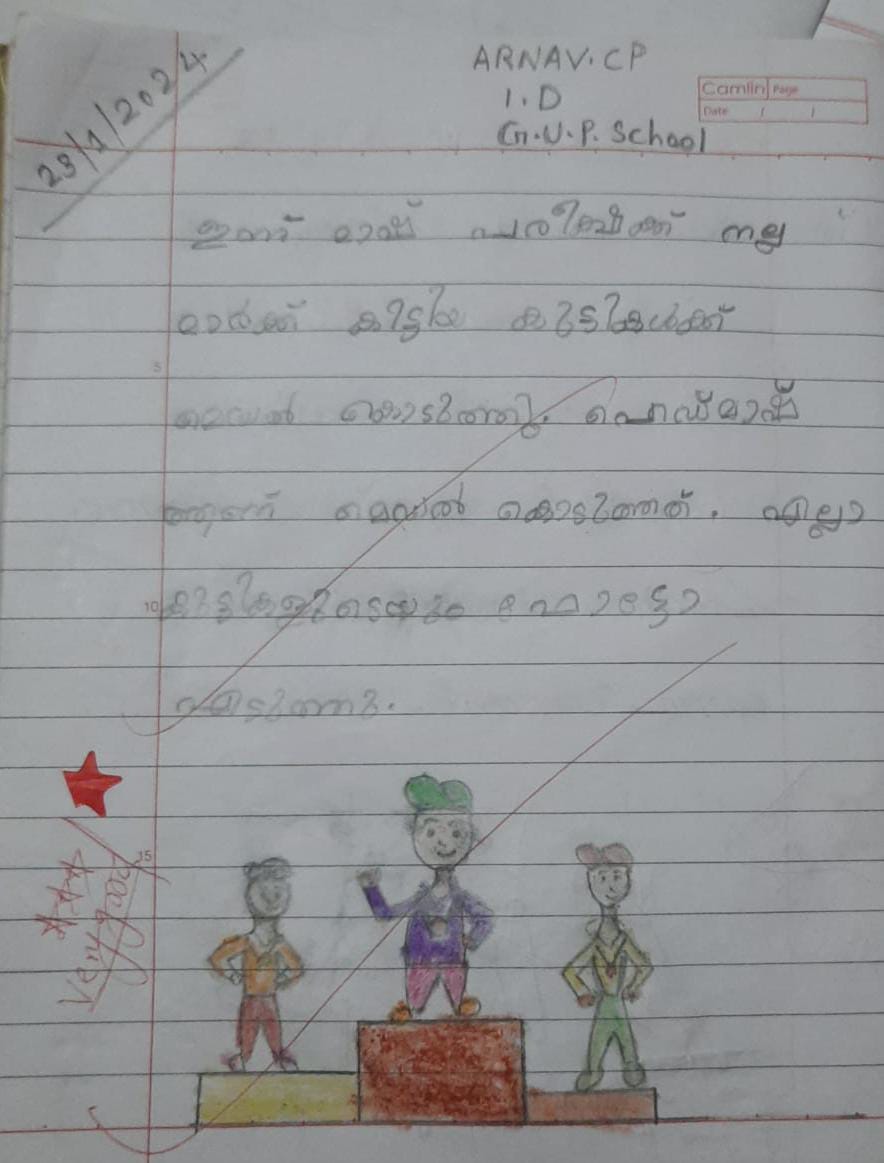 23/1/2024
ARNAV.CP
1.D
G.U.P. School
Camlin Page
Date / /
ഇന്ന് മാഷ് പരീക്ഷക്ക് നല്ല
മാർക്ക് കിട്ടിയ കുട്ടികൾക്ക്
മെഡൽ കൊടുത്തു. ഹെഡ്മാഷ്
ആണ് മെഡൽ കൊടുത്തത്. എല്ലാ
കുട്ടികളുടെയും ഫോട്ടോ
എടുത്തു.
5
10
15
Very good